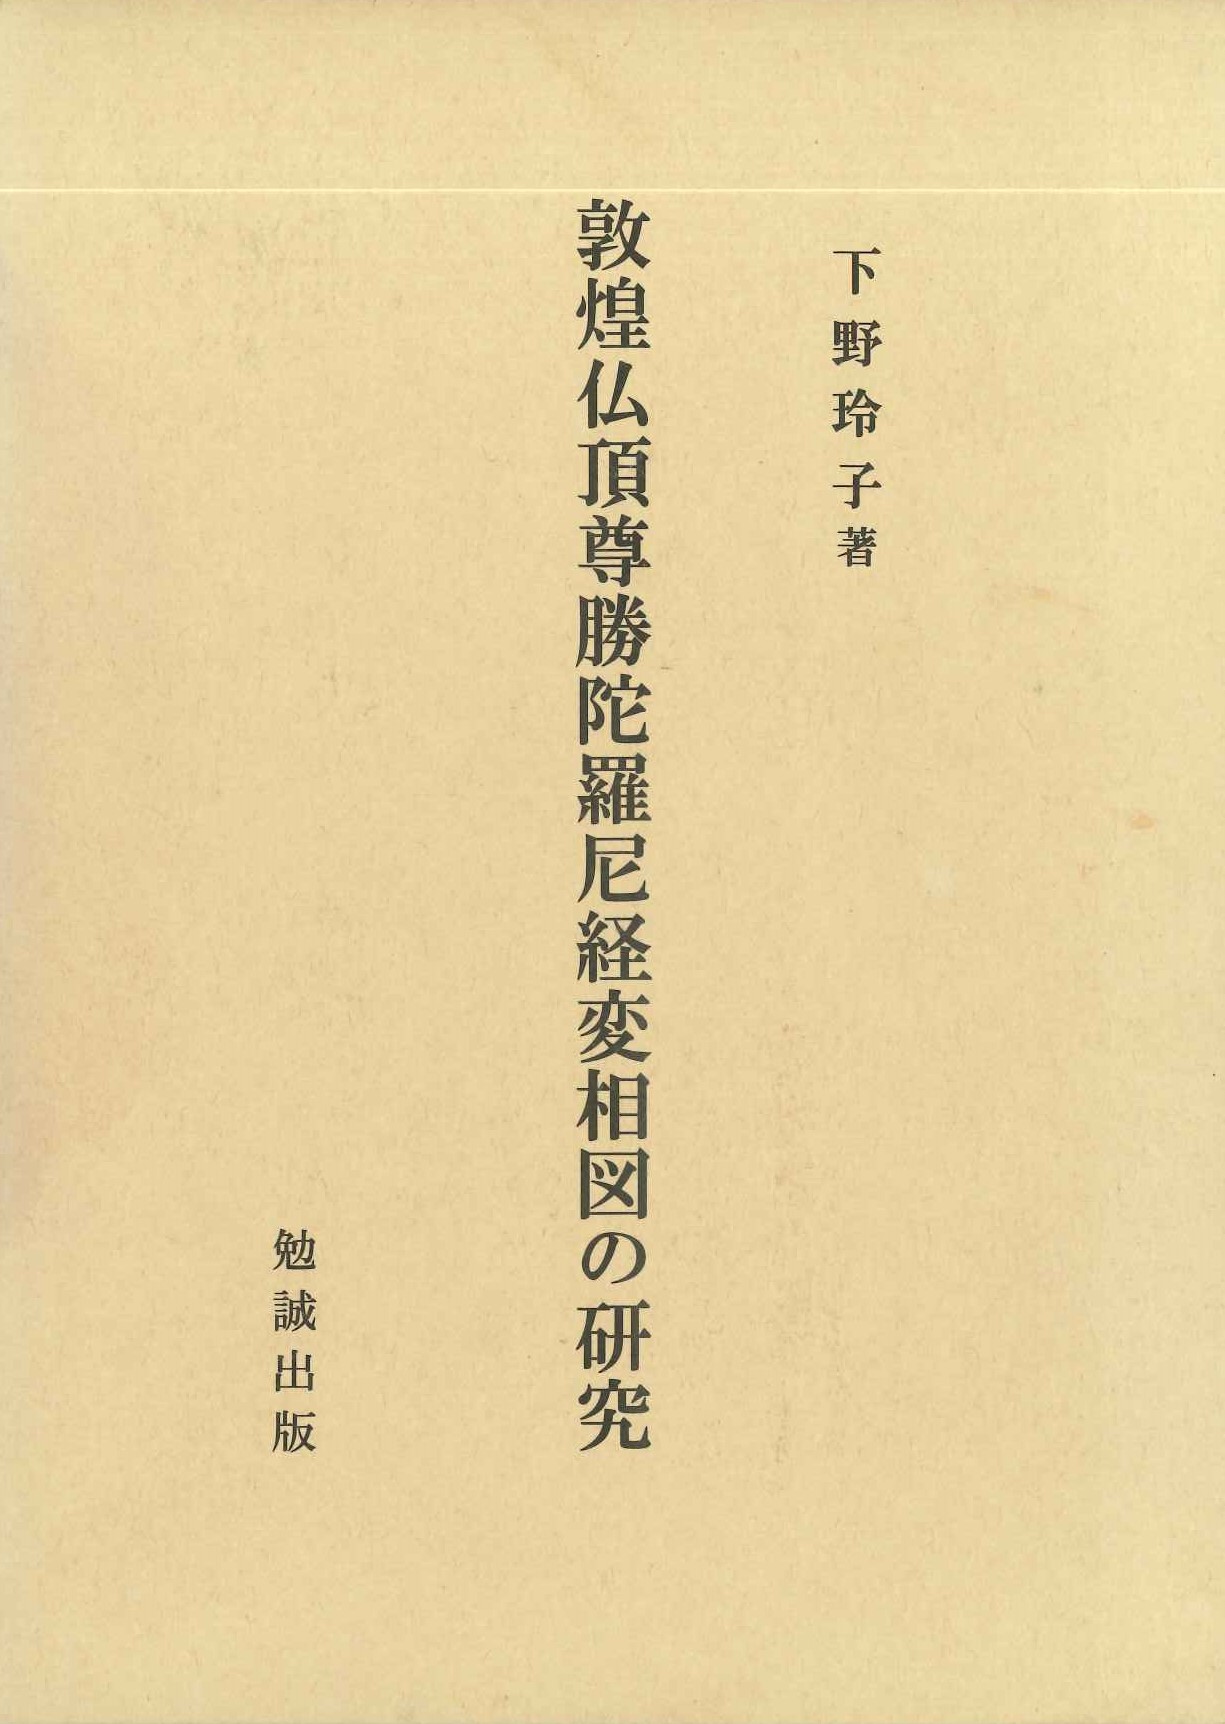 下野玲子著
敦煌仏頂尊勝陀羅尼経変相図の研究
勉誠出版